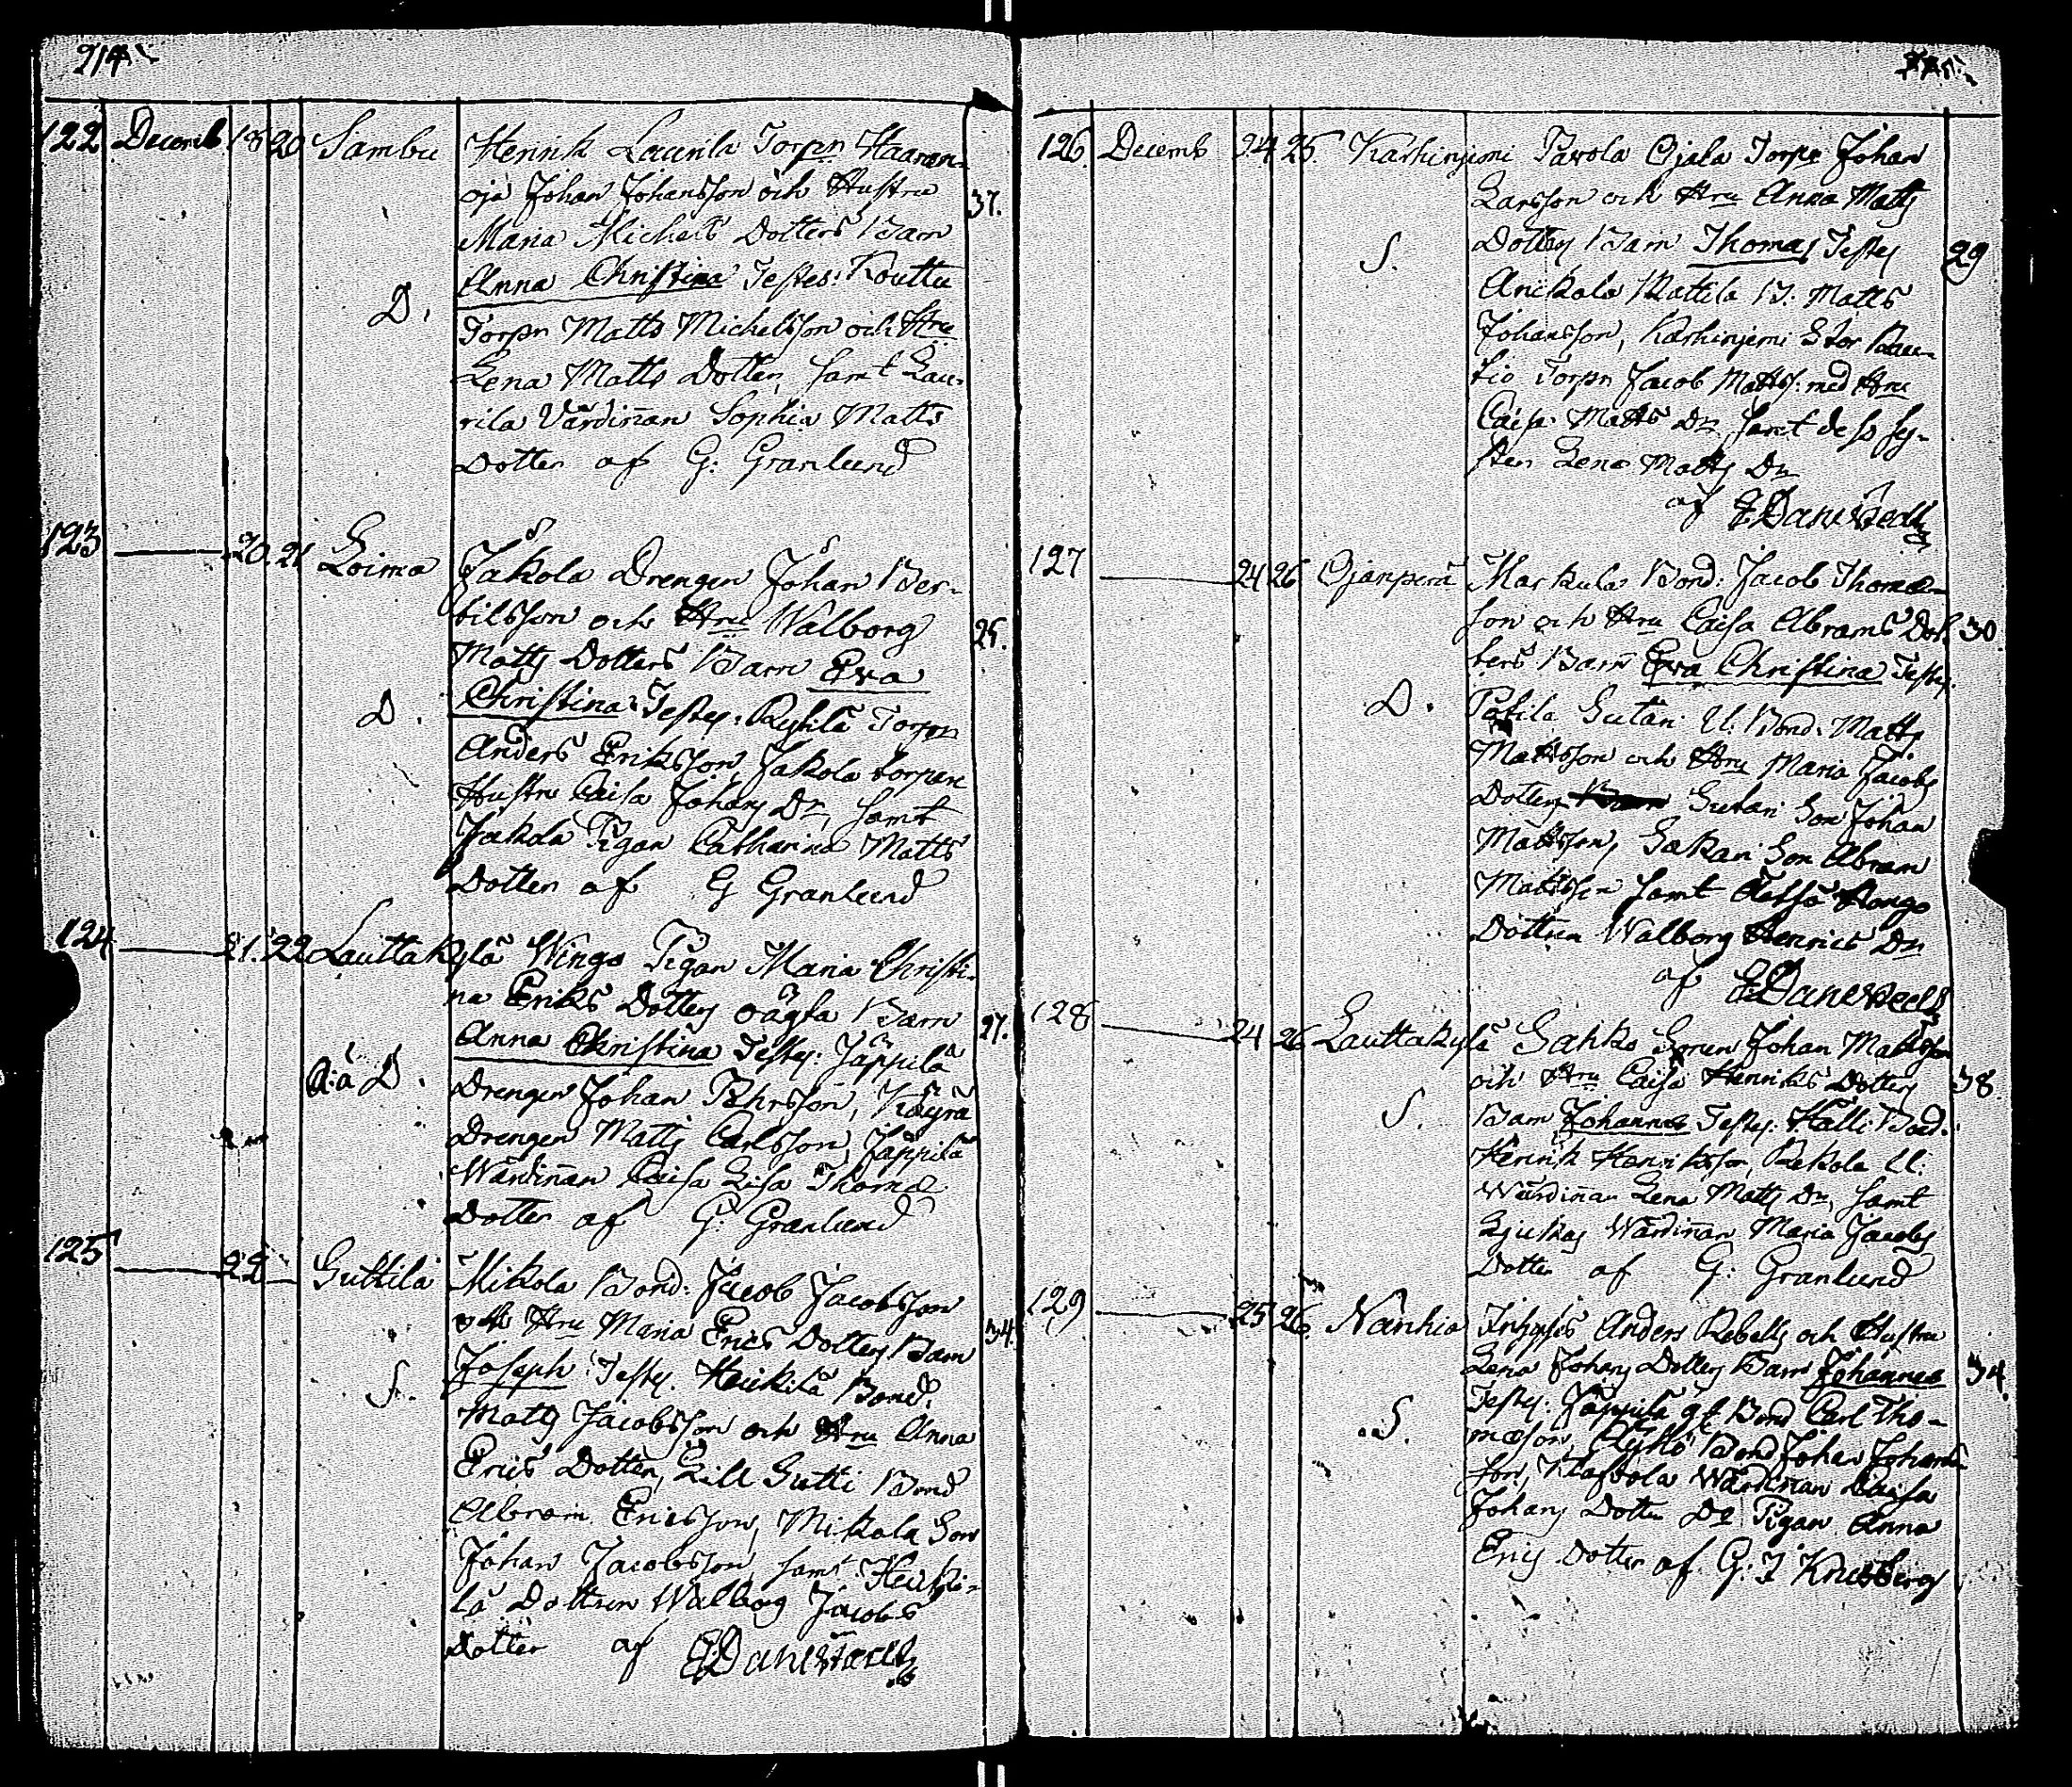 214
122 Decemb 18 20 Sambu Henrik Laurila Torpn Haaran-
oja Johan Johansson och Hustru 37.
Maria Michels Dotters Barn
Anna Christina Testes: Kouttu
D.
Torpn Matts Michelsson och Hru
Lena Matts Dotter, samt Lau-
rila Värdiñan Sophia Matts
Dotter af G: Granlund
123 20. 21 Loima Jakola Drengen Johan Ber-
tilsson och Hru Walborg 25.
Matts Dotters Barn Eva
D. Christina Testes: Torpn
Anders Eriksson, Jakola torpare
Hustru Caisa Johans Dr, samt
Jakola Pigan Catharina Matts
Dotter af G Granlund
124 21. 22 Lauttakylä Wingo Pigan Maria Christi-
na Eriks Dotters oägta Barn
Anna Christina Testes: Jäppilä 27.
O:ä D.
Drengen Johan Pehrsson, Köyrä
Drengen Matts Carlsson, Jäppilä
Wärdiñan Caisa Lisa Thomæ
Dotter af G: Granlund
125 22 Suttila Mikola Bond: Jacob Jacobsson
och Hru Maria Erics Dotters Barn 34.
Joseph Testes. Heikilä Bond.
S.
Matts Jacobsson och Hru Anna
Erics Dotter, Lill Sutti Bond
Abram Ericsson, Mikola Son
Johan Jacobsson, samt Heiki-
lä Dottren Walborg Jacobs
Dotter af
126. Decemb 24 25. Karhinjemi Pavola Ojala Torpr Johan
Larsson och Hru Anna Matts
S. Dotters Barn Thomas Testes 29
Anikola Mattila B: Matts
Johansson, Karhinjemi Stor Rau-
tio Torpn Jacob Matts: med Hru
Caisa Matts Dr samt dess sys-
ter Lena Matts Dr
af
127 24 26 Ojanperä Markula Bond: Jacob Thomæ-
son och Hru Caisa Abrams Dot 30
ters Barn Eva Christina Testes.
D. Sutari U: Bond: Matts
Mattsson och Hru Maria Jacobs
Dotter Sutari Son Johan
Mattsson, Sakari Son Abram
Mattsson samt
Dottren Walborg Henrics Dr
af
128 24 26 Lauttakylä Sahko Soren Johan Mattsson
och Hru Caisa Henriks Dotters 38
S. Barn Johannes Testes: Halli Bond.
Henrik Henriksson, Rekola U:
Wärdiñan Lena Matts Dr, samt
Ljukas Wärdiñan Maria Jacobs
Dotter af G: Granlund
129 25 26 Nanhia Inhyses Anders Rebell och Hustru
Lena Johans Dotters Barn Johannes 34.
Testes: Jäppilä Bond Carl Tho-
S. mæson, Bond Johan Johans
son, Wärdiñan Caisa
Johans Dotter Do Pigan Anna
Erics Dotter af G: I Krusberg